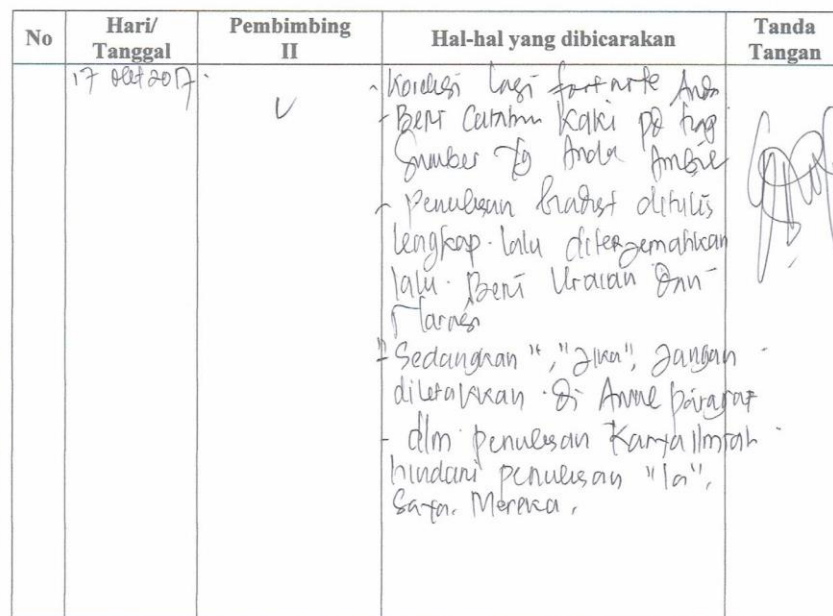 No
Hari/
Tanggal
Pembimbing
II
Hal-hal yang dibicarakan
Tanda
Tangan
17 okt 2017.
- Koreksi lagi footnote Anda
- Beri Catatan Kaki pd
Sumber yg Anda Ambil
- Penulisan ditulis
lengkap. lalu diterjemahkan
lalu. Beri Uraian dan
- "Sedangkan", "Jika", Jangan
diletakkan di Awal paragraf
- dlm penulisan Karya Ilmiah
hindari penulisan "Ia",
Saya. Mereka.